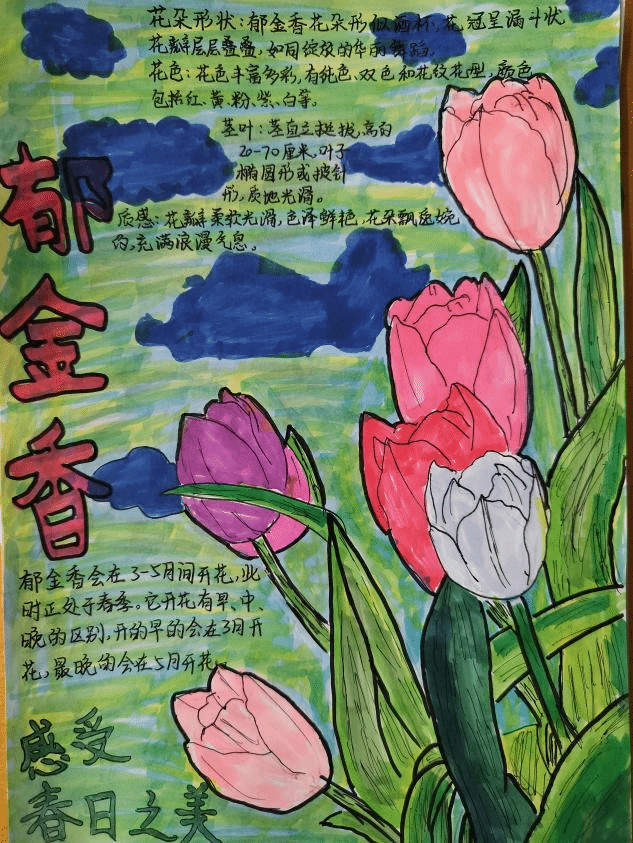 花朵形状:郁金香花朵形似酒杯,花冠呈漏斗状
花瓣层层叠叠,如同绽放的华丽舞蹈。
花色:花色丰富多彩,有纯色、双色和花纹花型,颜色
包括红、黄、粉、紫、白等。
茎叶:茎直立挺拔,高约
20-70厘米,叶子
椭圆形或披针
形,质地光滑。
质感:花瓣柔软光滑,色泽鲜艳,花朵飘逸婉
约,充满浪漫气息。
郁
金
香
郁金香会在3-5月间开花,此
时正处于春季。它开花有早、中、
晚的区别,开的早的会在3月开
花,最晚的会在5月开花。
感受
春日之美